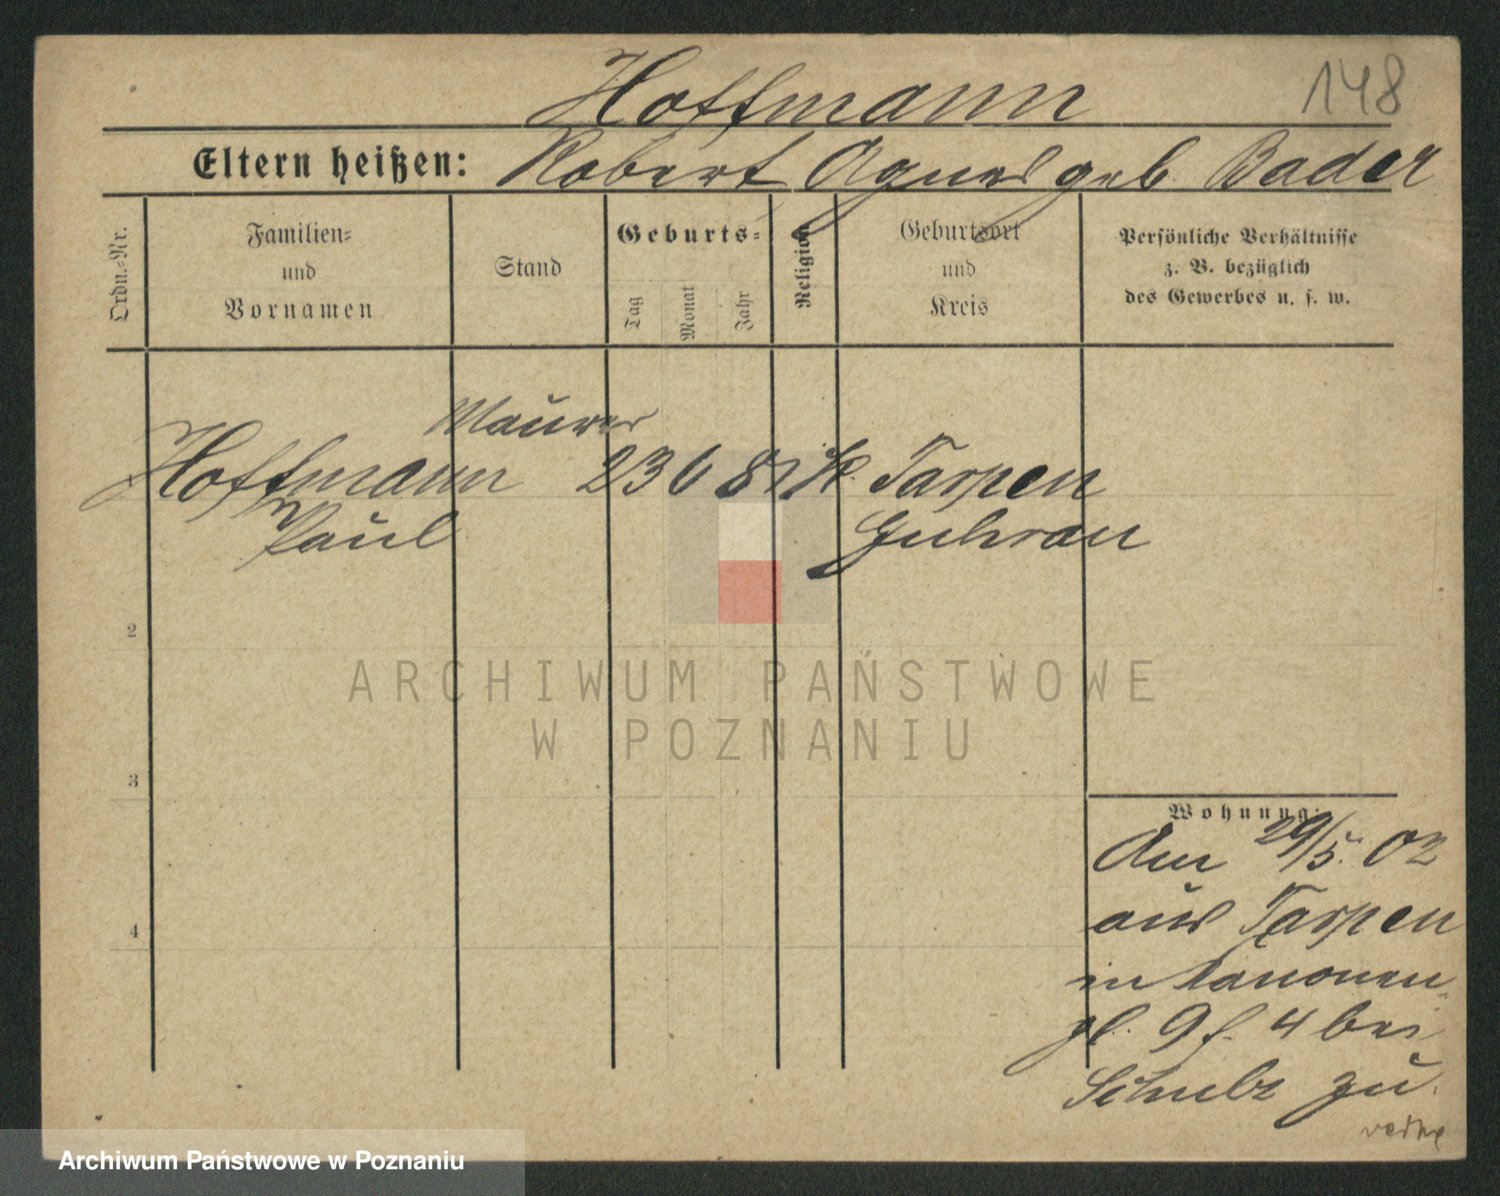 Hoffmann 148
Eltern heißen: Robert Agnes geb. Bader
Ordn.-Nr.
Familien-
und
Vornamen
Stand
Geburts-
Tag
Monat
Jahr
Religion
Geburtsort
und
Kreis
Persönliche Verhältnisse
z. B. bezüglich
des Gewerbes u. s. w.
Maurer
Hoffmann 23 6 81 k. Tarpen
Paul Guhrau
2
3
4
ARCHIWUM PAŃSTWOWE
W POZNANIU
Wohnung:
Am 29/5. 02
aus Tarpen
in Kanonen-
pl. 9 f. 4 bei
Schulz zu.
Archiwum Państwowe w Poznaniu